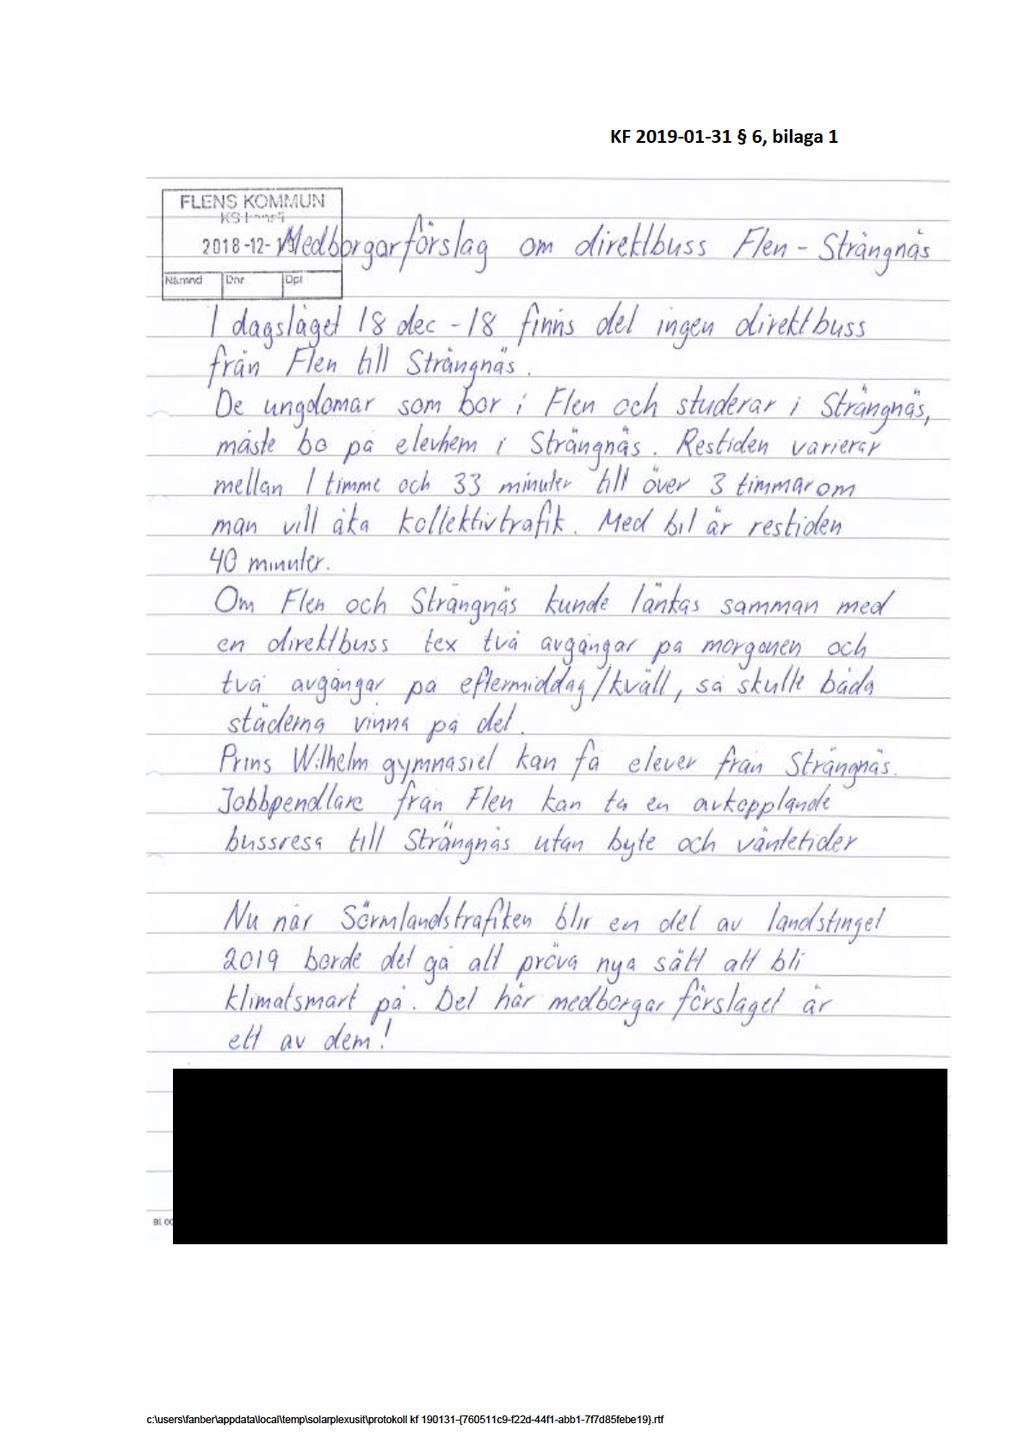 KF 2019-01-31 § 6, bilaga 1
FLENS KOMMUN
KS
2018-12-
Nämnd Dnr Dpl
Medborgarförslag om direktbuss Flen - Strängnäs
I dagsläget 18 dec -18 finns det ingen direktbuss
från Flen till Strängnäs.
De ungdomar som bor i Flen och studerar i Strängnäs,
måste bo på elevhem i Strängnäs. Restiden varierar
mellan 1 timme och 33 minuter till över 3 timmar om
man vill åka kollektivtrafik. Med bil är restiden
40 minuter.
Om Flen och Strängnäs kunde länkas samman med
en direktbuss tex två avgångar på morgonen och
två avgångar på eftermiddag/kväll, så skulle båda
städerna vinna på det.
Prins Wilhelm gymnasiet kan få elever från Strängnäs.
Jobbpendlare från Flen kan ta en avkopplande
bussresa till Strängnäs utan byte och väntetider
Nu när Sörmlandstrafiken blir en del av landstinget
2019 borde det gå att pröva nya sätt att bli
klimatsmart på. Det här medborgarförslaget är
ett av dem!
BL 00
c:\users\fanber\appdata\local\temp\solarplexusit\protokoll kf 190131-{760511c9-f22d-44f1-abb1-7f7d85febe19}.rtf